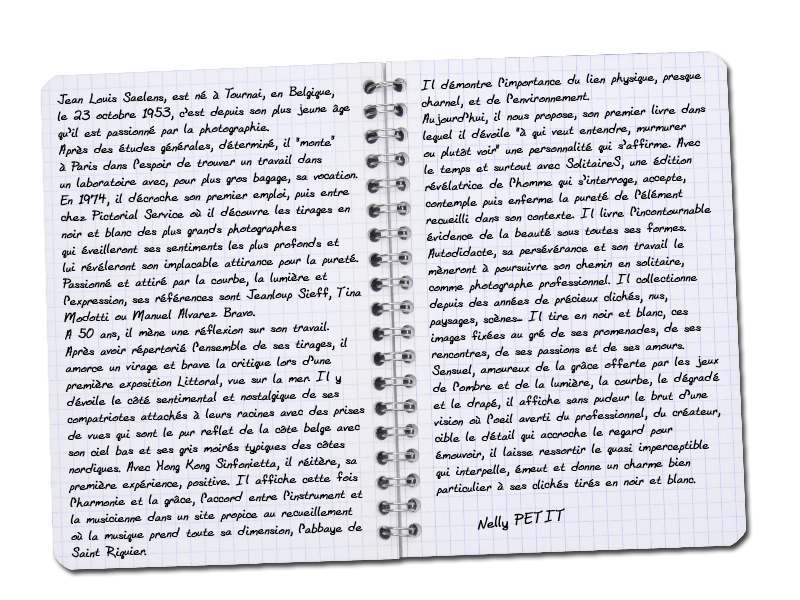 Jean Louis Saelens, est né à Tournai, en Belgique,
le 23 octobre 1953, c'est depuis son plus jeune âge
qu'il est passionné par la photographie.
Après des études générales, déterminé, il "monte"
à Paris dans l'espoir de trouver un travail dans
un laboratoire avec, pour plus gros bagage, sa vocation.
En 1974, il décroche son premier emploi, puis entre
chez Pictorial Service où il découvre les tirages en
noir et blanc des plus grands photographes
qui éveilleront ses sentiments les plus profonds et
lui révéleront son implacable attirance pour la pureté.
Passionné et attiré par la courbe, la lumière et
l'expression, ses références sont Jeanloup Sieff, Tina
Modotti ou Manuel Alvarez Bravo.
A 50 ans, il mène une réflexion sur son travail.
Après avoir répertorié l'ensemble de ses tirages, il
amorce un virage et brave la critique lors d'une
première exposition Littoral, vue sur la mer. Il y
dévoile le côté sentimental et nostalgique de ses
compatriotes attachés à leurs racines avec des prises
de vues qui sont le pur reflet de la côte belge avec
son ciel bas et ses gris moirés typiques des côtes
nordiques. Avec Hong Kong Sinfonietta, il réitère, sa
première expérience, positive. Il affiche cette fois
l'harmonie et la grâce, l'accord entre l'instrument et
la musicienne dans un site propice au recueillement
où la musique prend toute sa dimension, l'abbaye de
Saint Riquier.
Il démontre l'importance du lien physique, presque
charnel, et de l'environnement.
Aujourd'hui, il nous propose, son premier livre dans
lequel il dévoile "à qui veut entendre, murmurer
ou plutôt voir" une personnalité qui s'affirme. Avec
le temps et surtout avec SolitaireS, une édition
révélatrice de l'homme qui s'interroge, accepte,
contemple puis enferme la pureté de l'élément
recueilli dans son contexte. Il livre l'incontournable
évidence de la beauté sous toutes ses formes.
Autodidacte, sa persévérance et son travail le
mèneront à poursuivre son chemin en solitaire,
comme photographe professionnel. Il collectionne
depuis des années de précieux clichés, nus,
paysages, scènes... Il tire en noir et blanc, ces
images fixées au gré de ses promenades, de ses
rencontres, de ses passions et de ses amours.
Sensuel, amoureux de la grâce offerte par les jeux
de l'ombre et de la lumière, la courbe, le dégradé
et le drapé, il affiche sans pudeur le brut d'une
vision où l'oeil averti du professionnel, du créateur,
cible le détail qui accroche le regard pour
émouvoir, il laisse ressortir le quasi imperceptible
qui interpelle, émeut et donne un charme bien
particulier à ses clichés tirés en noir et blanc.
Nelly PETIT